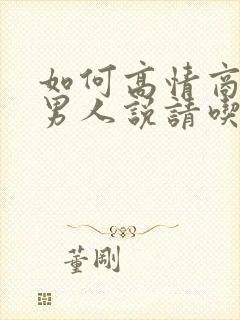 如何高情商
男人說請喫
董剛